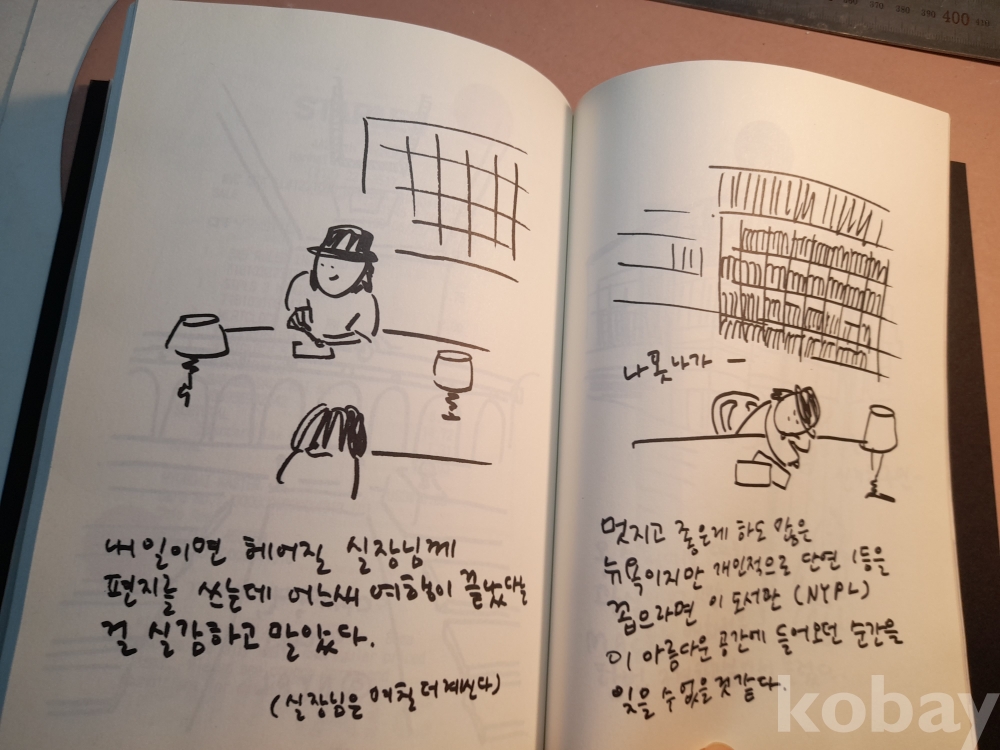 내일이면 헤어질 실장님께
편지를 쓰는데 어느새 여행이 끝났다는
걸 실감하고 말았다.
(실장님은 며칠 더 계신다)
나 못 나가 —
멋지고 좋은게 하도 많은
뉴욕이지만 개인적으로 단연 1등을
꼽으라면 이 도서관 (NYPL)
이 아름다운 공간에 들어오던 순간을
잊을 수 없을 것 같다.
370
380
390
400
410
kobay